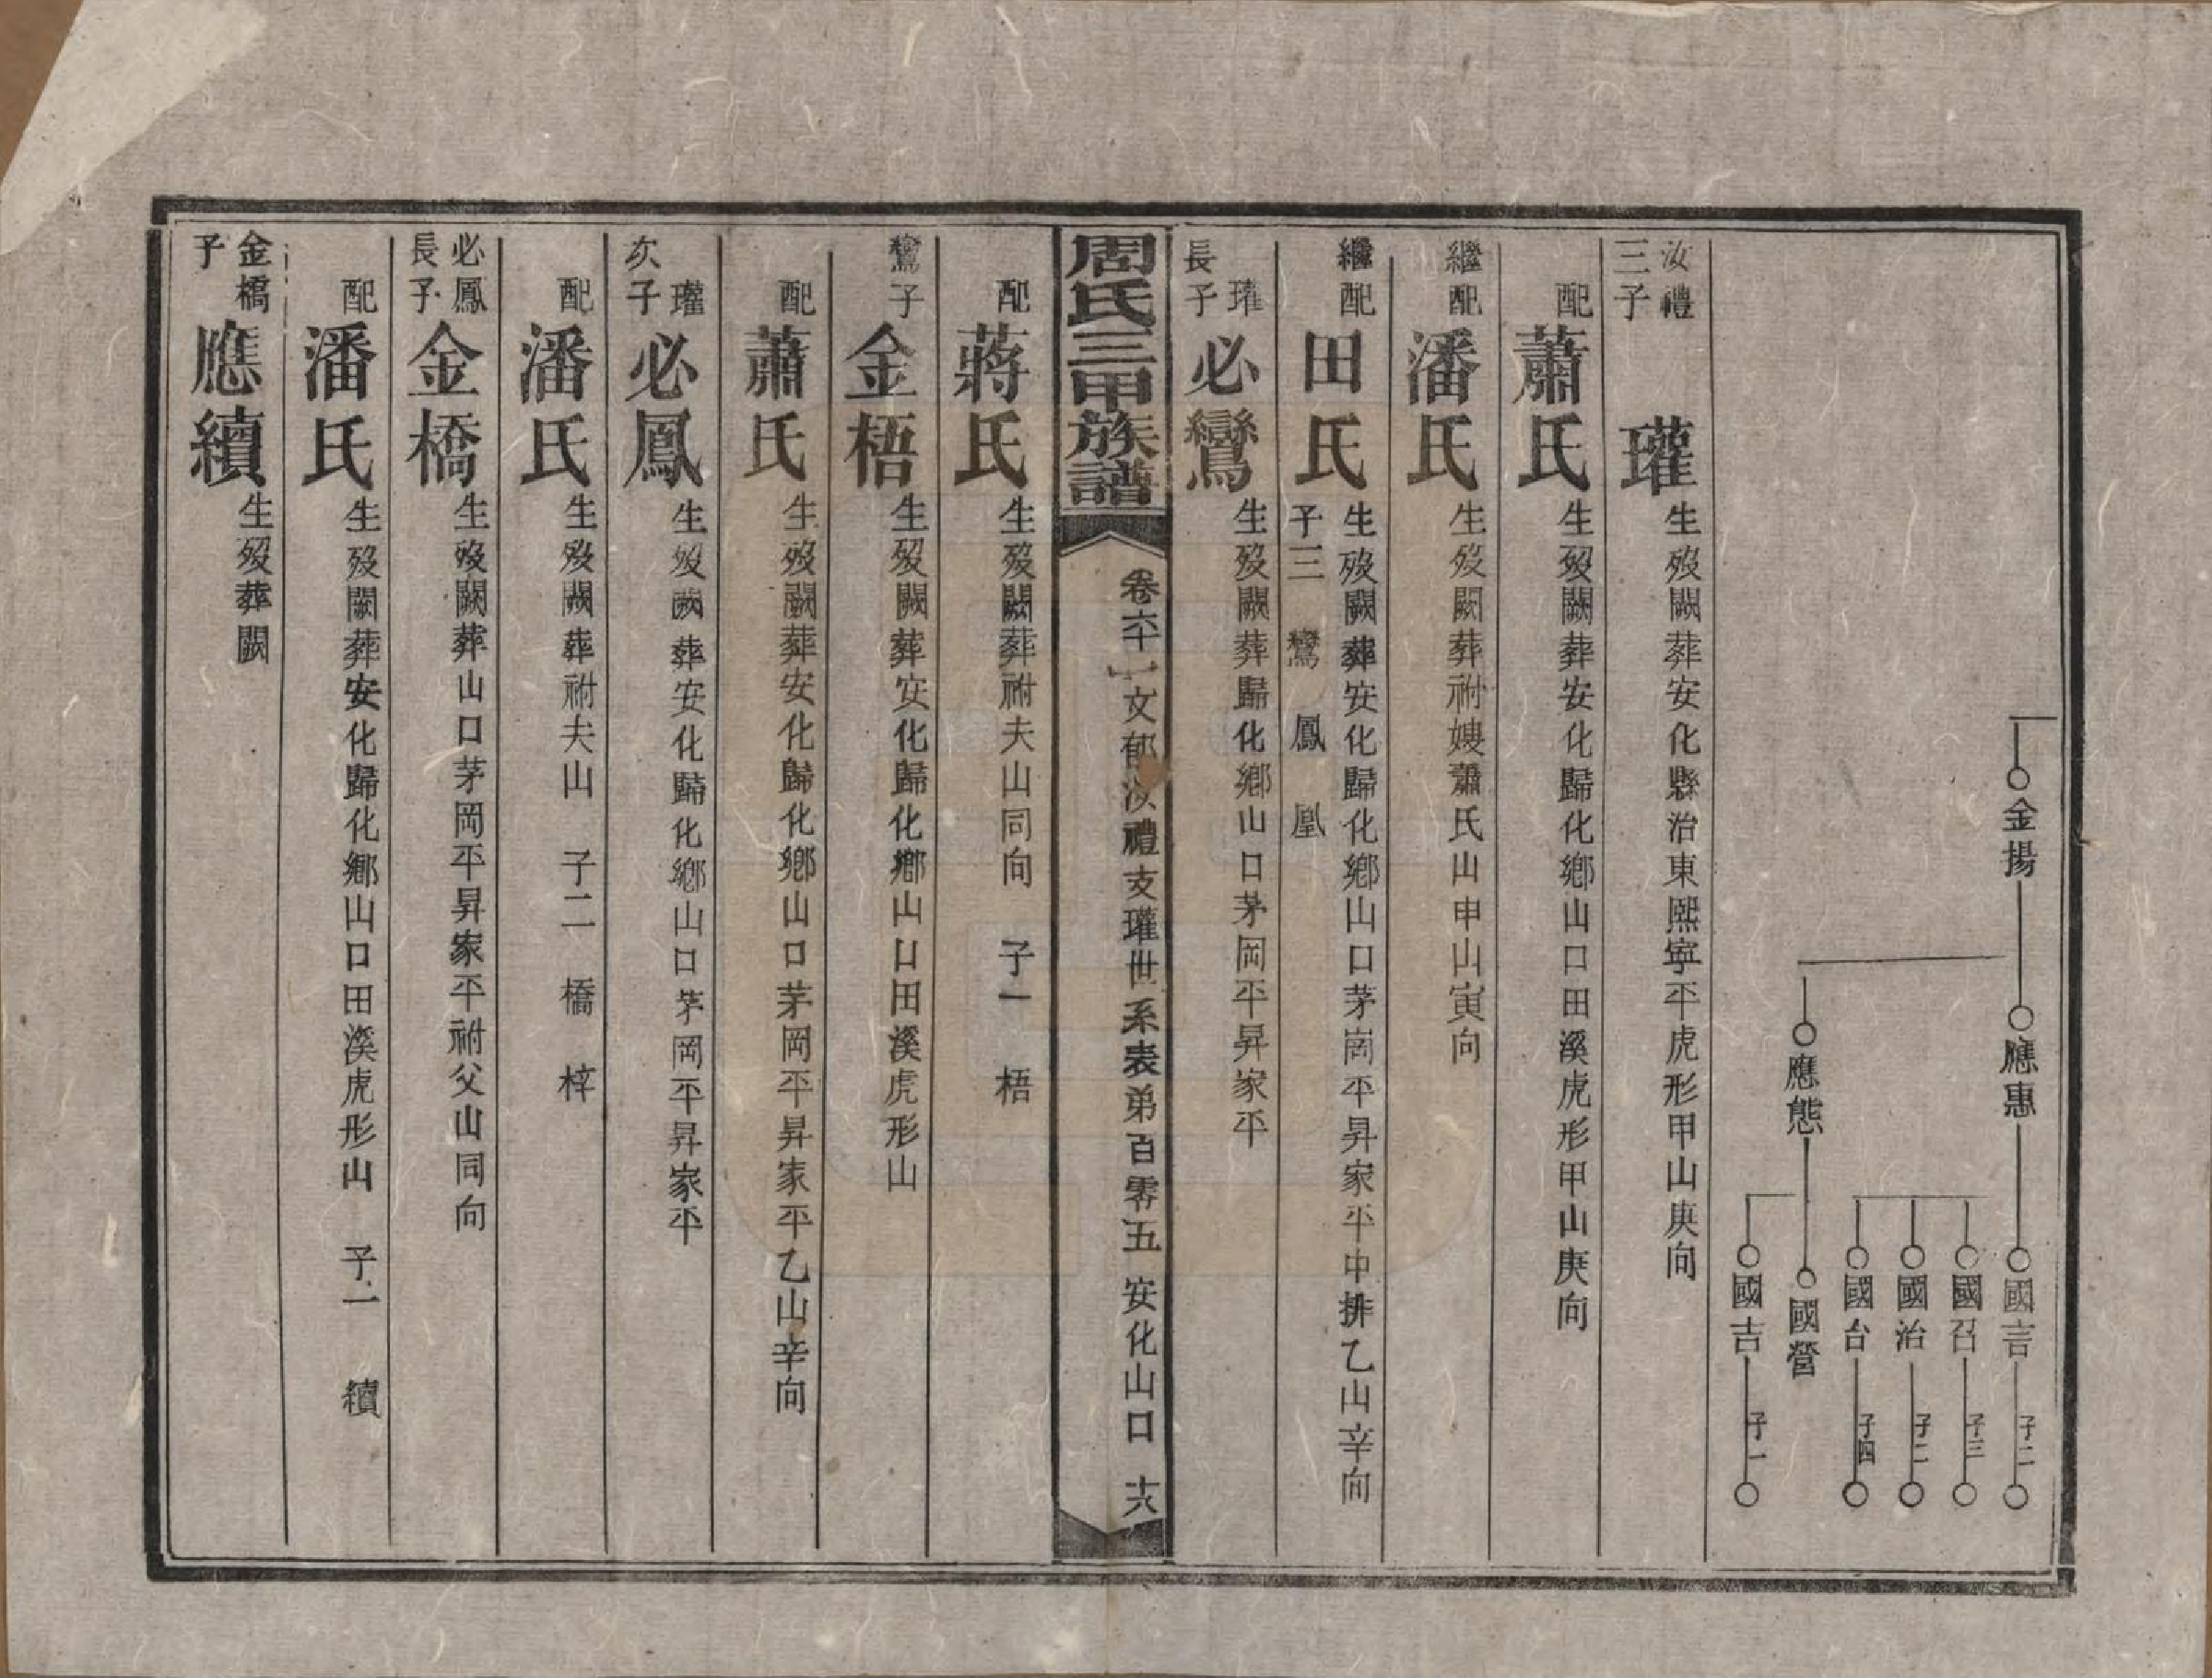 金揚 應惠 國言 子二
國召 子三
國治 子二
國台 子四
應態 國營
國吉 子一
汝禮三子 瓘 生歿闕葬安化縣治東熙寧平虎形甲山庚向
配 蕭氏 生歿闕葬安化歸化鄉山口田溪虎形甲山庚向
繼配 潘氏 生歿闕葬祔嫂蕭氏山申山寅向
繼配 田氏 生歿闕葬安化歸化鄉山口茅崗平昇家平中排乙山辛向
子三 鸞 鳳 凰
瓘長子 必鸞 生歿闕葬歸化鄉山口茅岡平昇家平
周氏三甲族譜 卷六十一 文郁汝禮支瓘世系表弟百零五 安化山口 十六
配 蔣氏 生歿闕葬祔夫山同向 子一 梧
鸞子 金梧 生歿闕葬安化歸化鄉山口田溪虎形山
配 蕭氏 生歿闕葬安化歸化鄉山口茅岡平昇家平乙山辛向
瓘次子 必鳳 生歿闕葬安化歸化鄉山口茅岡平昇家平
配 潘氏 生歿闕葬祔夫山 子二 橋 梓
必鳳長子 金橋 生歿闕葬山口茅岡平昇家平祔父山同向
配 潘氏 生歿闕葬安化歸化鄉山口田溪虎形山 子一 續
金橋子 應續 生歿葬闕